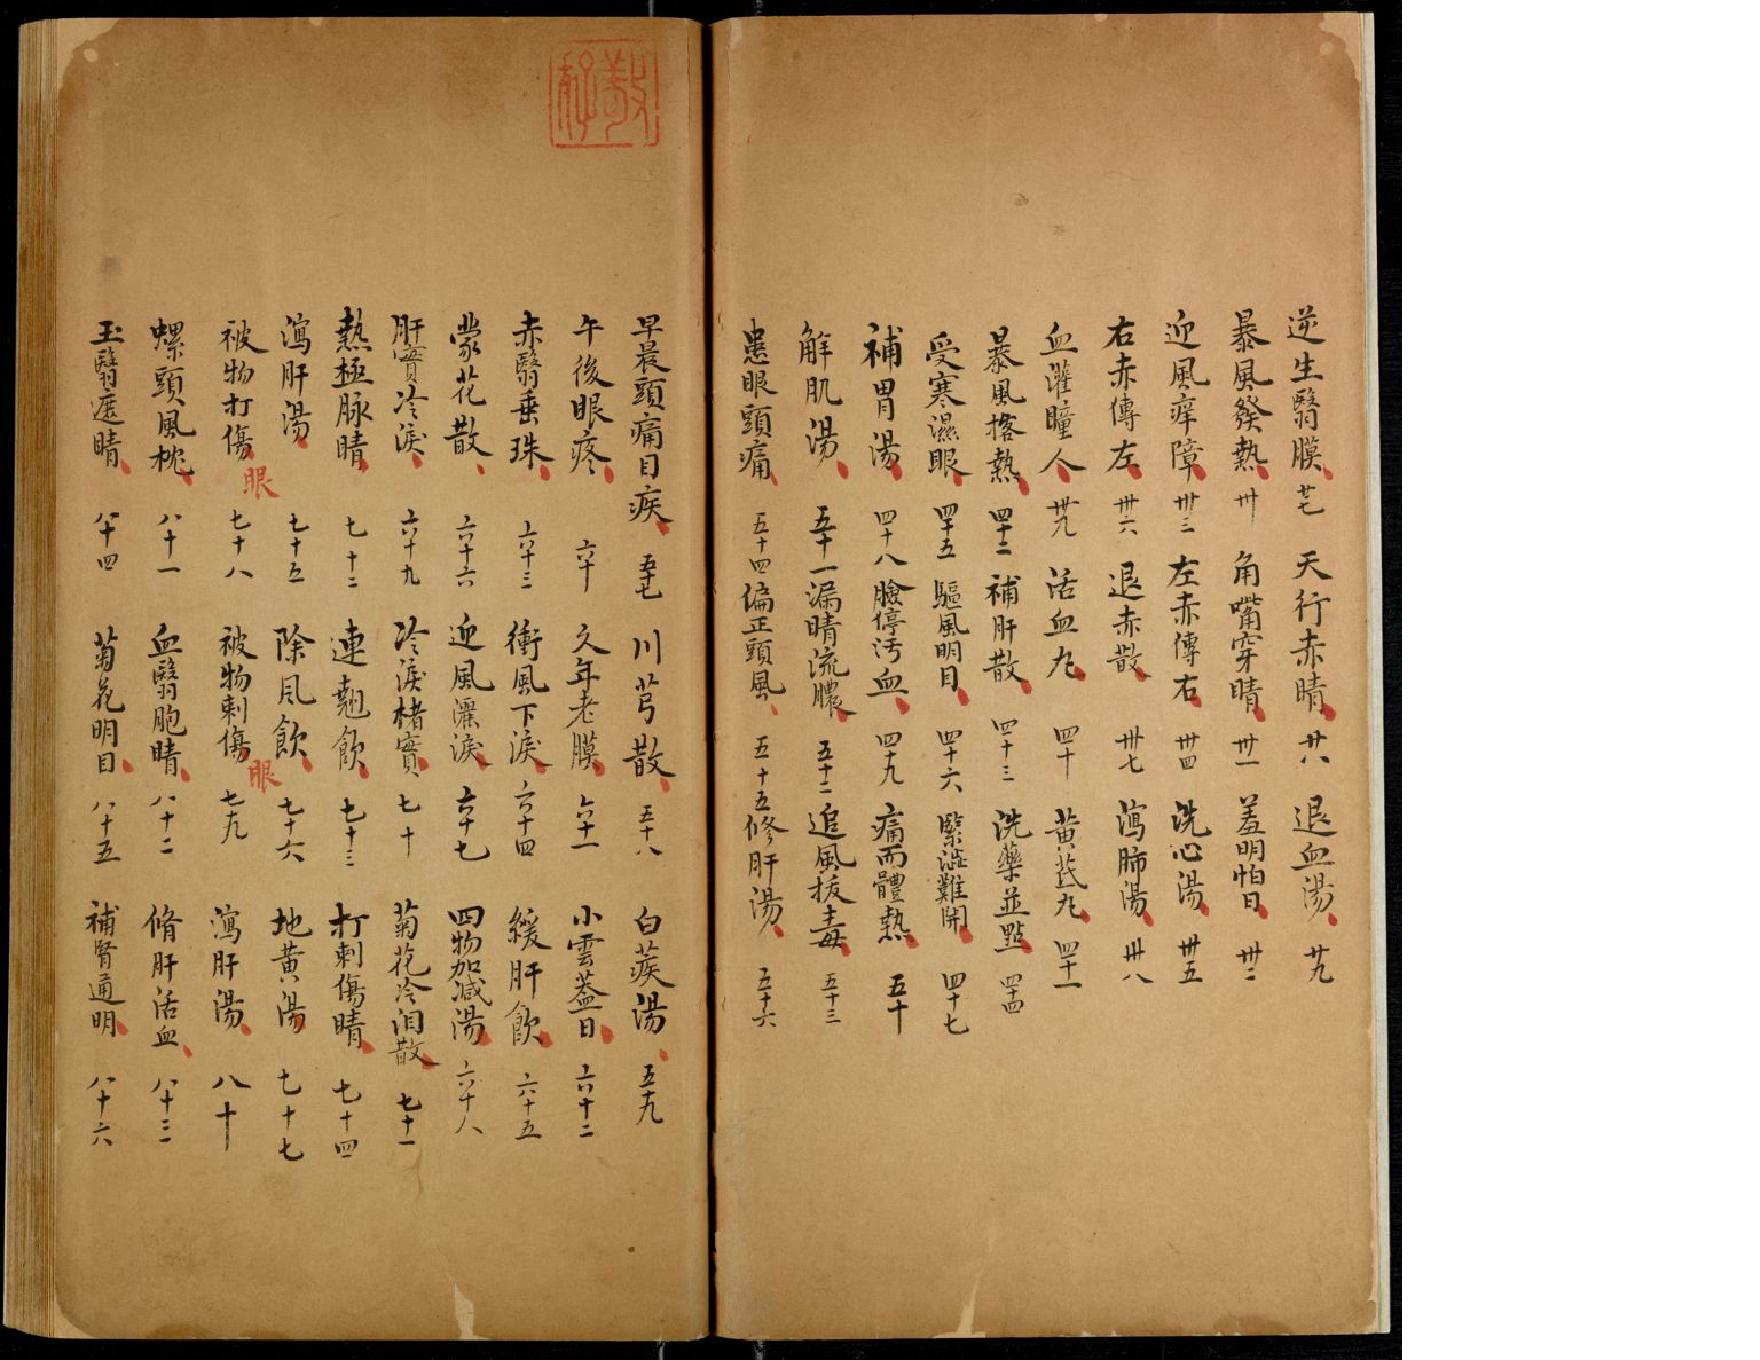 逆生翳膜 廿七 天行赤睛 廿八 退血湯 廿九
暴風發熱 卅 角嘴穿睛 卅一 羞明怕日 卅二
迎風痒障 卅三 左赤傳右 卅四 洗心湯 卅五
右赤傳左 卅六 退赤散 卅七 瀉肺湯 卅八
血灌瞳人 卅九 活血丸 四十 黃芪丸 四十一
暴風撘熱 四十二 補肝散 四十三 洗藥並點 四十四
受寒濕眼 四十五 驅風明目 四十六 緊澁難開 四十七
補胃湯 四十八 臉停污血 四十九 痛而體熱 五十
解肌湯 五十一 漏睛流膿 五十二 追風拔毒 五十三
患眼頭痛 五十四 偏正頭風 五十五 修肝湯 五十六
早晨頭痛目疾 五十七 川芎散 五十八 白蒺湯 五十九
午後眼疼 六十 久年老膜 六十一 小雲蓋日 六十二
赤翳垂珠 六十三 衝風下淚 六十四 緩肝飲 六十五
蒙花散 六十六 迎風灑淚 六十七 四物加減湯 六十八
肝實冷淚 六十九 冷淚楮實 七十 菊花冷泪散 七十一
熱極脉睛 七十二 連翹飲 七十三 打刺傷睛 七十四
瀉肝湯 七十五 除風飲 七十六 地黃湯 七十七
被物打傷眼 七十八 被物刺傷眼 七十九 瀉肝湯 八十
螺頭風枕 八十一 血翳胞睛 八十二 脩肝活血 八十三
玉翳遮睛 八十四 菊花明目 八十五 補腎通明 八十六